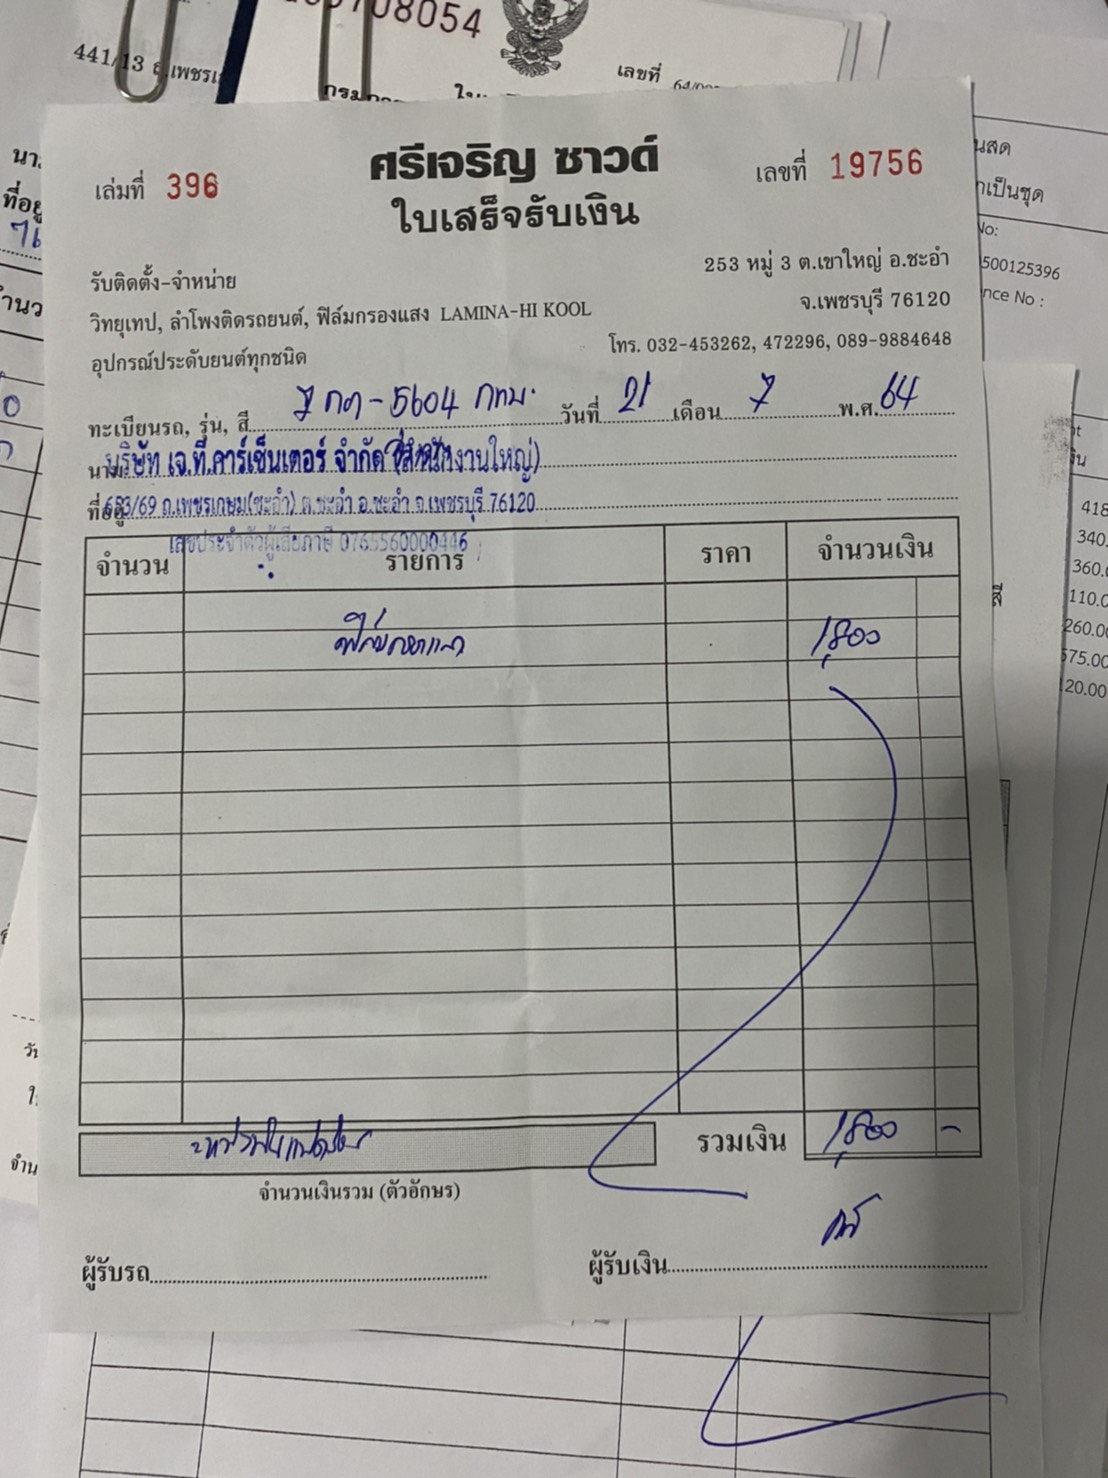 08054
441/13 ถ.เพชรเ
เลขที่
ศรีเจริญ ซาวด์
เล่มที่ 396
เลขที่ 19756
ใบเสร็จรับเงิน
253 หมู่ 3 ต.เขาใหญ่ อ.ชะอำ
จ.เพชรบุรี 76120
โทร. 032-453262, 472296, 089-9884648
รับติดตั้ง-จำหน่าย
วิทยุเทป, ลำโพงติดรถยนต์, ฟิล์มกรองแสง LAMINA-HI KOOL
อุปกรณ์ประดับยนต์ทุกชนิด
ทะเบียนรถ, รุ่น, สี 7 กต-5604 กทม. วันที่ 21 เดือน 7 พ.ศ. 64
นาม บริษัท เจ.ที.คาร์เซ็นเตอร์ จำกัด (สำนักงานใหญ่)
ที่อยู่ 683/69 ถ.เพชรเกษม(ชะอำ) ต.ชะอำ อ.ชะอำ จ.เพชรบุรี 76120
เลขประจำตัวผู้เสียภาษี 0765560000446
จำนวน รายการ ราคา จำนวนเงิน
ฟิล์มกรองแสง 1,800
รวมเงิน 1,800 -
จำนวนเงินรวม (ตัวอักษร)
ผู้รับรถ
ผู้รับเงิน
นสด
าเป็นชุด
No:
500125396
nce No :
418
340.
360.
110.0
260.00
575.00
120.00